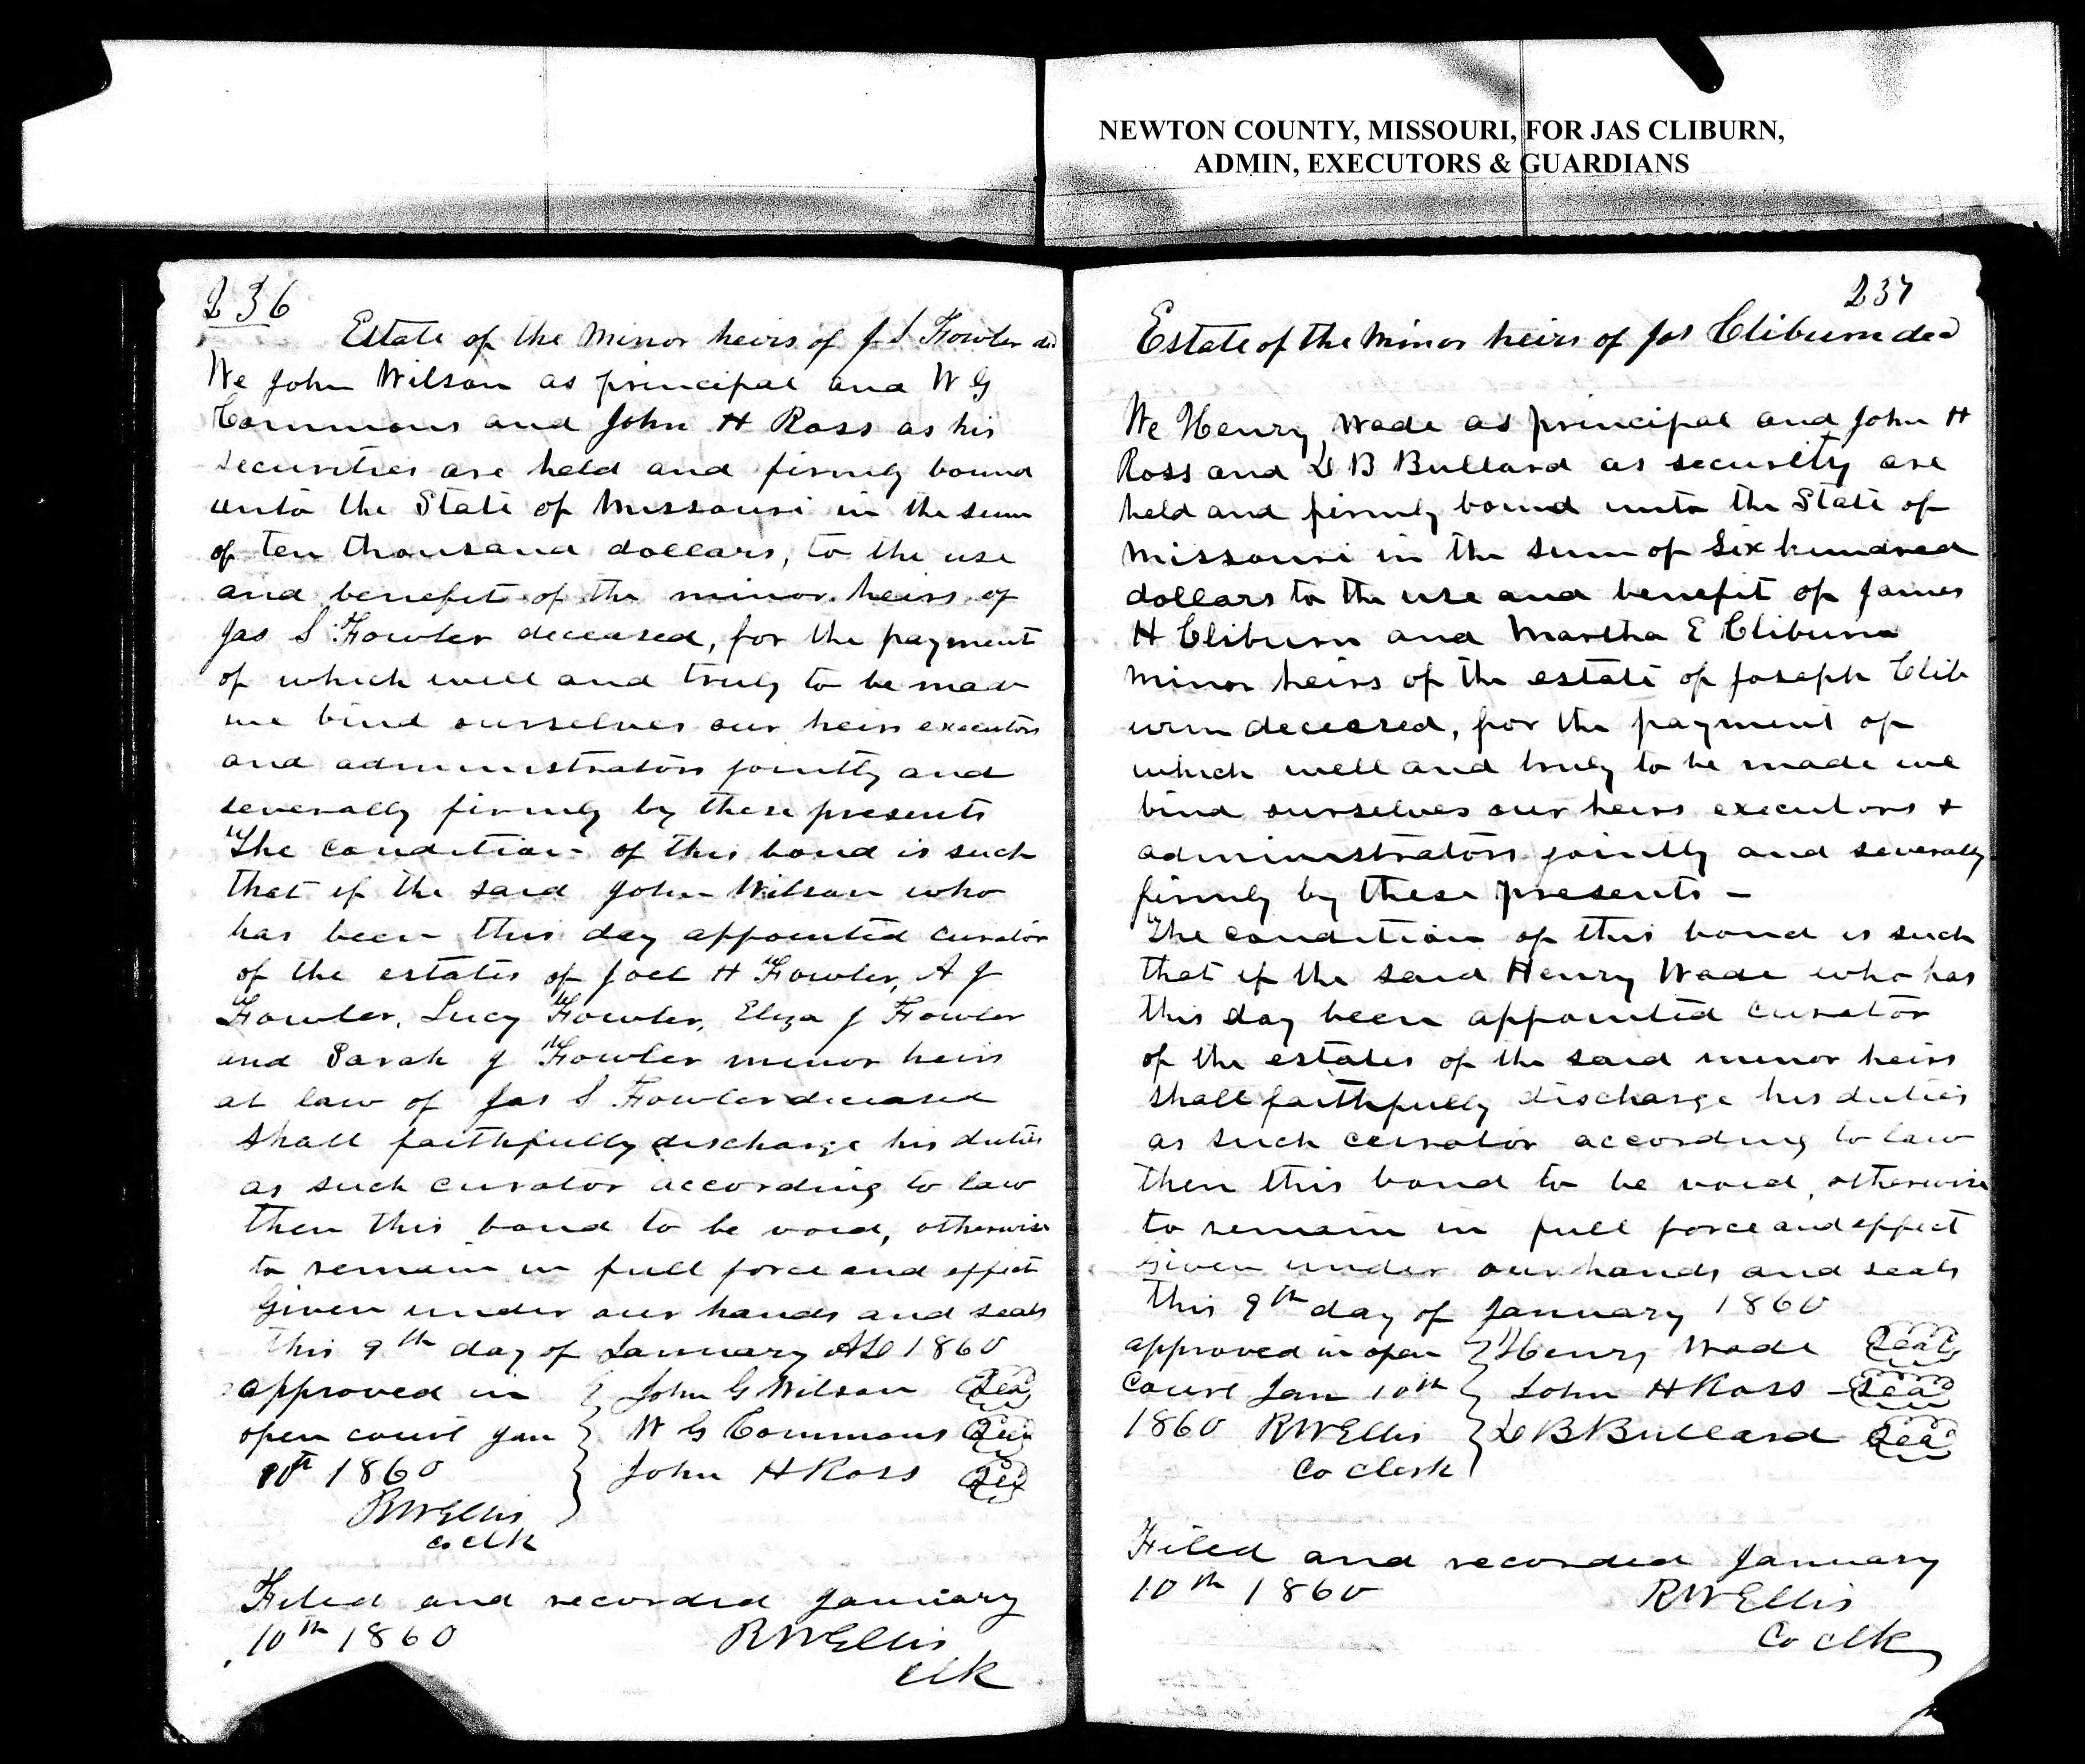 NEWTON COUNTY, MISSOURI, FOR JAS CLIBURN,
ADMIN, EXECUTORS & GUARDIANS
236
Estate of the Minor heirs of J S Fowler
We John Wilson as principal and W G
Commons and John H Ross as his
securities are held and firmly bound
unto the State of Missouri in the sum
of Ten thousand dollars, to the use
and benefit of the minor heirs of
Jas S Fowler deceased, for the payment
of which well and truly to be made
we bind ourselves our heirs executors
and administrators jointly and
severally firmly by these presents
The condition of this bond is such
that if the said John Wilson who
has been this day appointed curator
of the estates of Joel H Fowler, A J
Fowler, Lucy Fowler, Eliza J Fowler
and Sarah J Fowler minor heirs
at law of Jas S Fowler deceased
shall faithfully discharge his duties
as such curator according to law
then this bond to be void, otherwise
to remain in full force and effect
Given under our hands and seals
this 9th day of January AD 1860
approved in John G Wilson Seal
open court Jan W G Commons Seal
10th 1860 John H Ross Seal
R W Ellis
Co clk
Filed and recorded January
10th 1860 R W Ellis
clk
237
Estate of the Minor heirs of Jos Cliburn decd
We Henry Wade as principal and John H
Ross and D B Bullard as security are
held and firmly bound unto the State of
Missouri in the sum of Six hundred
dollars to the use and benefit of James
H Cliburn and Martha E Cliburn
minor heirs of the estate of Joseph Clib
urn deceased, for the payment of
which well and truly to be made we
bind ourselves our heirs executors &
administrators jointly and severally
firmly by these presents -
The condition of this bond is such
that if the said Henry Wade who has
this day been appointed curator
of the estates of the said minor heirs
shall faithfully discharge his duties
as such curator according to law
then this bond to be void, otherwise
to remain in full force and effect
Given under our hands and seals
this 9th day of January 1860
approved in open Henry Wade Seal
court Jan 10th John H Ross Seal
1860 R W Ellis D B Bullard Seal
Co Clerk
Filed and recorded January
10th 1860 R W Ellis
Co clk